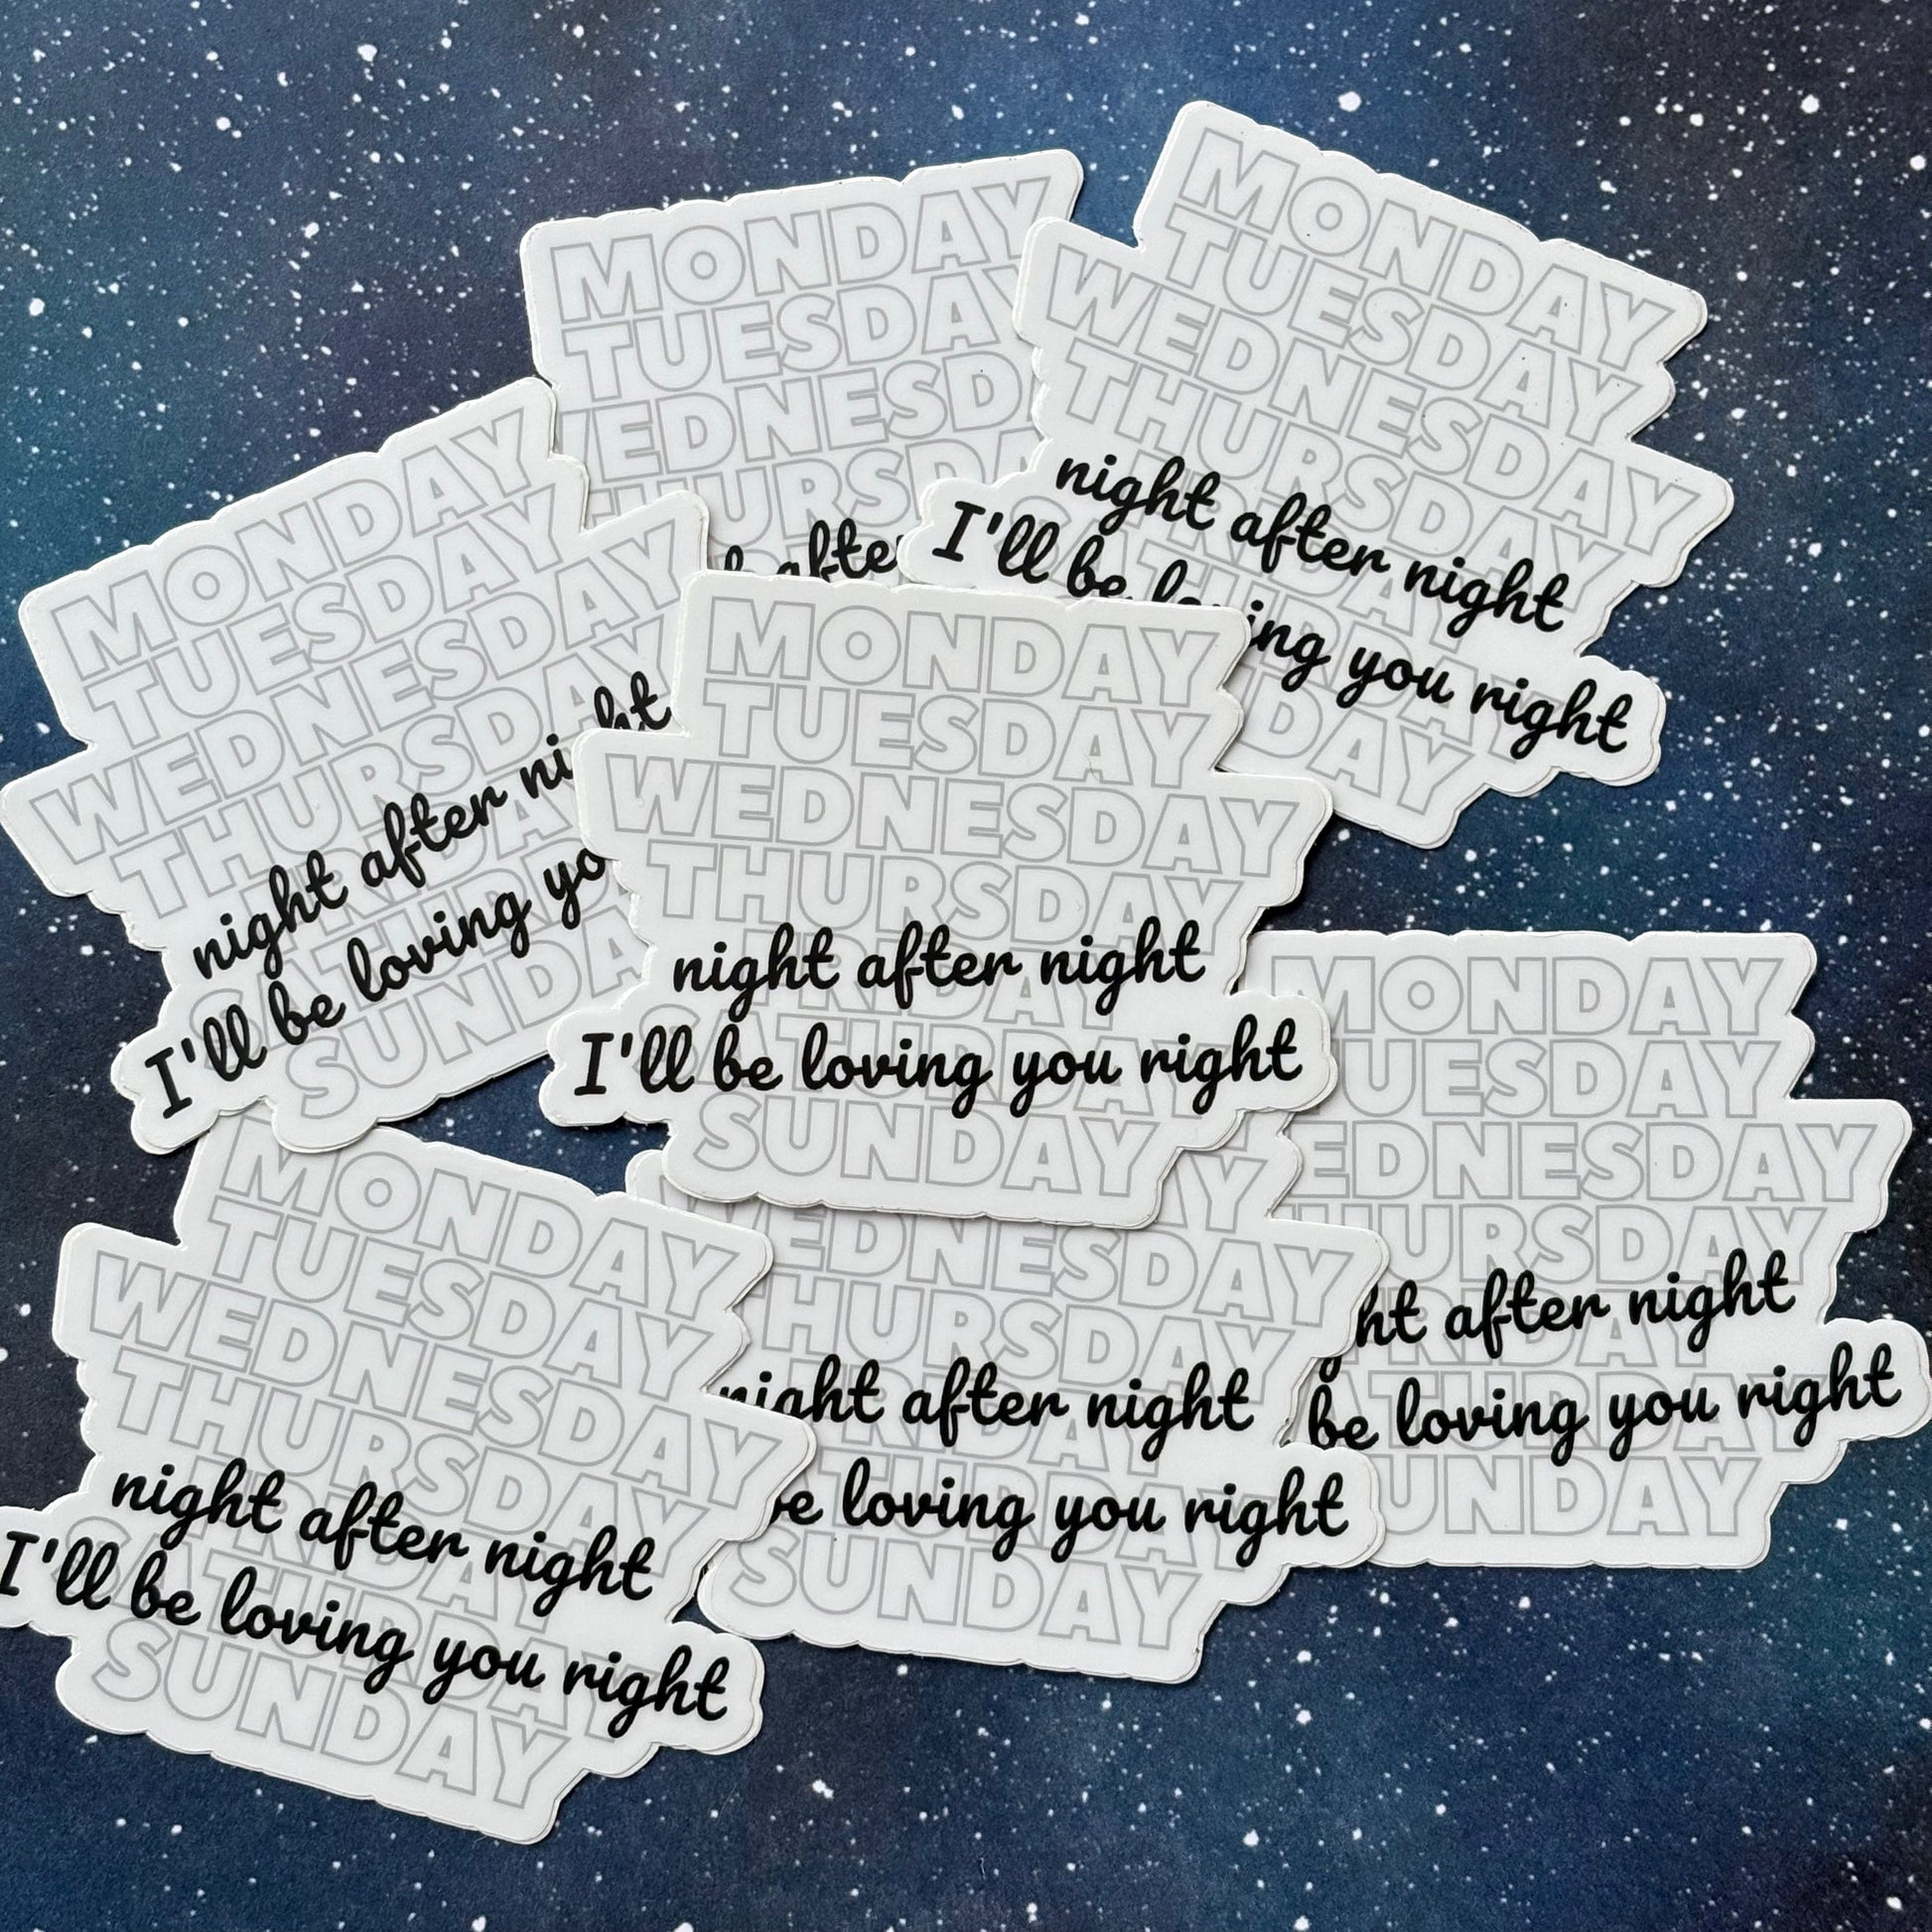 MONDAY
TUESDAY
WEDNESD
THURSDA
after
MONDAY
TUESDAY
WEDNESDAY
THURSDAY
night after night
FRIDAY
I'll be loving you right
SATURDAY
SUNDAY
MONDAY
TUESDAY
WEDNESDAY
THURSDAY
night after night
FRIDAY
I'll be loving yo
SATURDAY
SUNDAY
MONDAY
TUESDAY
WEDNESDAY
THURSDAY
night after night
FRIDAY
I'll be loving you right
SATURDAY
SUNDAY
MONDAY
TUESDAY
EDNESDAY
HURSDAY
ht after night
FRIDAY
be loving you right
SATURDAY
UNDAY
MONDAY
TUESDAY
WEDNESDAY
THURSDAY
night after night
FRIDAY
I'll be loving you right
SATURDAY
SUNDAY
WEDNESDAY
THURSDAY
night after night
FRIDAY
be loving you right
SATURDAY
SUNDAY